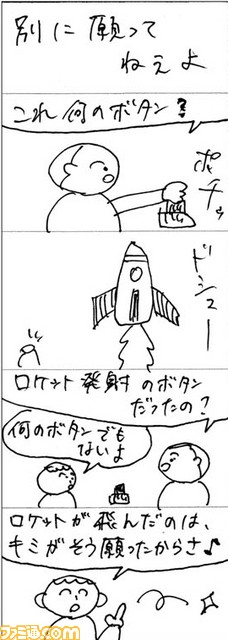 別に願って
ねぇよ
これ何のボタン?
ポチッ
ドシュー
ロケット発射のボタン
だったの?
何のボタンでも
ないよ
ロケットが飛んだのは、
キミがそう願ったからさ♪
ファミ通.com